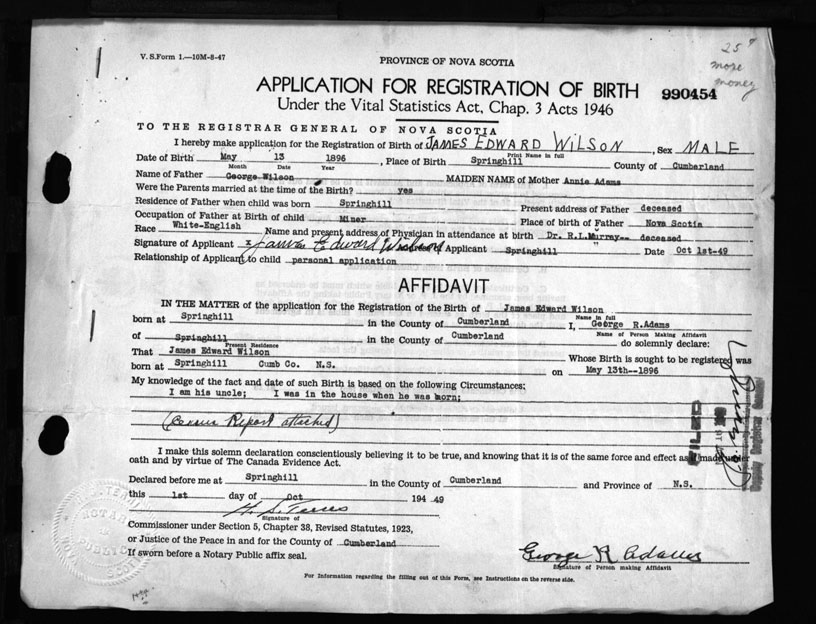 V. S. Form 1.—10M-8-47
PROVINCE OF NOVA SCOTIA
25¢
more
money
APPLICATION FOR REGISTRATION OF BIRTH
990454
Under the Vital Statistics Act, Chap. 3 Acts 1946
TO THE REGISTRAR GENERAL OF NOVA SCOTIA
I hereby make application for the Registration of Birth of JAMES EDWARD WILSON, Sex MALE
Print Name in full
Date of Birth May 13 1896, Place of Birth Springhill County of Cumberland
Month Date Year
Name of Father George Wilson MAIDEN NAME of Mother Annie Adams
Were the Parents married at the time of the Birth? yes
Residence of Father when child was born Springhill Present address of Father deceased
Occupation of Father at Birth of child Miner Place of birth of Father Nova Scotia
Race White-English Name and present address of Physician in attendance at birth Dr. R.L.Murray-- deceased
Signature of Applicant x James Edward Wilson of Applicant Springhill Date Oct 1st-49
Relationship of Applicant to child personal application
AFFIDAVIT
IN THE MATTER of the application for the Registration of the Birth of James Edward Wilson
Name in full
born at Springhill in the County of Cumberland I, George R.Adams
Name of Person Making Affidavit
of Springhill in the County of Cumberland do solemnly declare:
Present Residence
That James Edward Wilson Whose Birth is sought to be registered was
born at Springhill Cumb Co. N.S. on May 13th--1896
My knowledge of the fact and date of such Birth is based on the following Circumstances:
I am his uncle; I was in the house when he was born;
(Census Report attached)
FILED
I make this solemn declaration conscientiously believing it to be true, and knowing that it is of the same force and effect as if made under
oath and by virtue of The Canada Evidence Act.
Declared before me at Springhill in the County of Cumberland and Province of N.S.
this 1st day of Oct 194 49
Signature of
Commissioner under Section 5, Chapter 38, Revised Statutes, 1923,
or Justice of the Peace in and for the County of Cumberland
If sworn before a Notary Public affix seal.
George R Adams
Signature of Person making Affidavit
For Information regarding the filling out of this Form, see Instructions on the reverse side.
NOTARY
PUBLIC